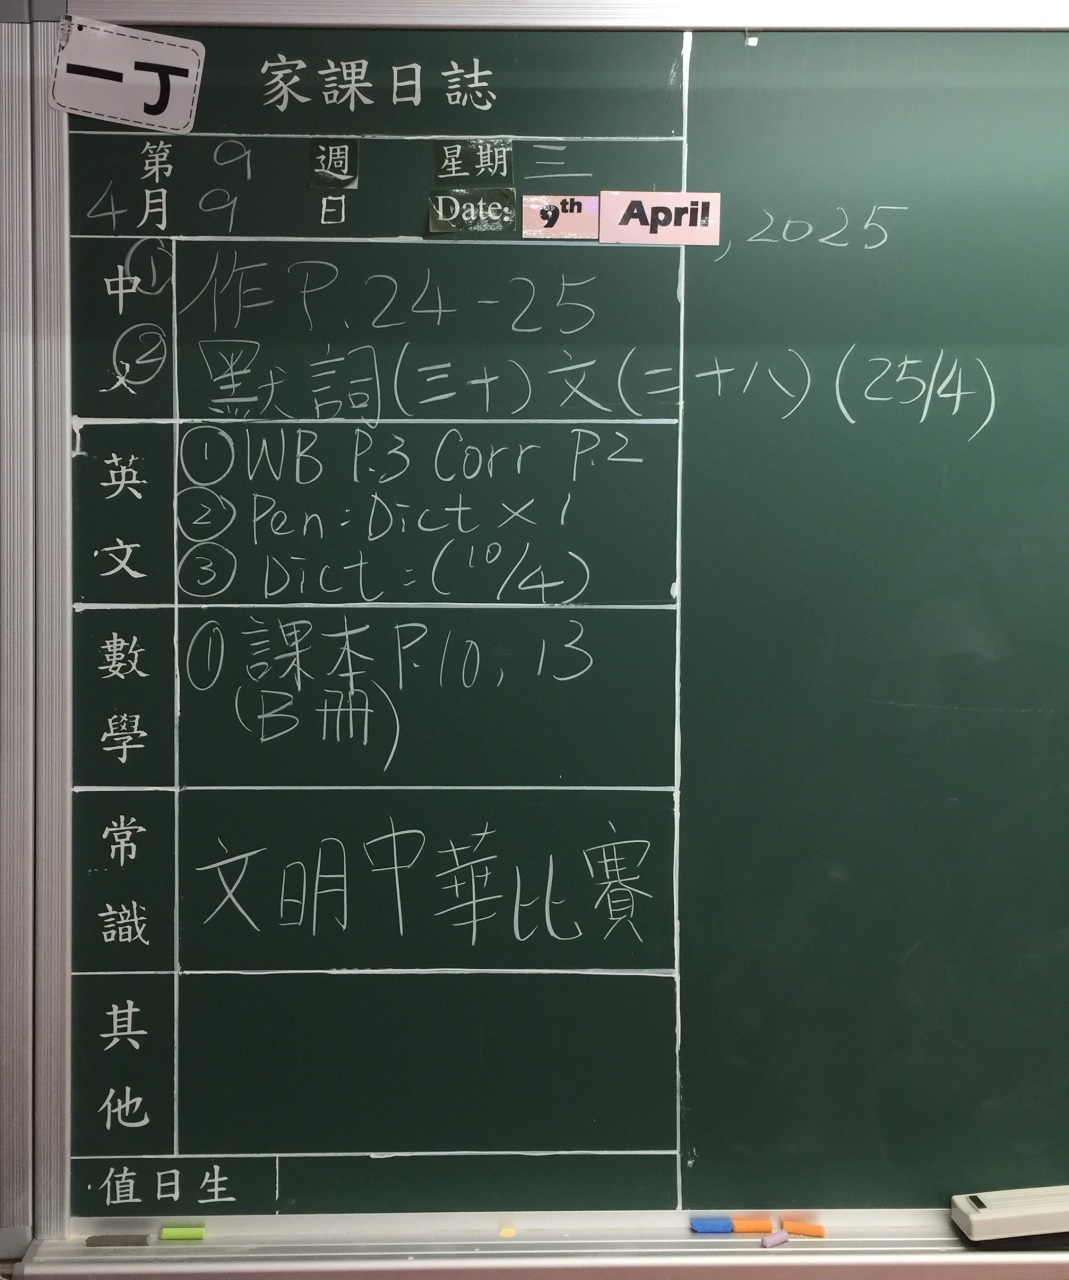 一丁
家課日誌
第 9 週 星期 三
4 月 9 日 Date: 9th April, 2025
中文
① 作 P.24-25
② 默 詞(三十)文(二十八)(25/4)
英文
① WB P.3 Corr P.2
② Pen: Dict × 1
③ Dict: (10/4)
數學
① 課本 P.10, 13
(B冊)
常識
文明中華比賽
其他
值日生